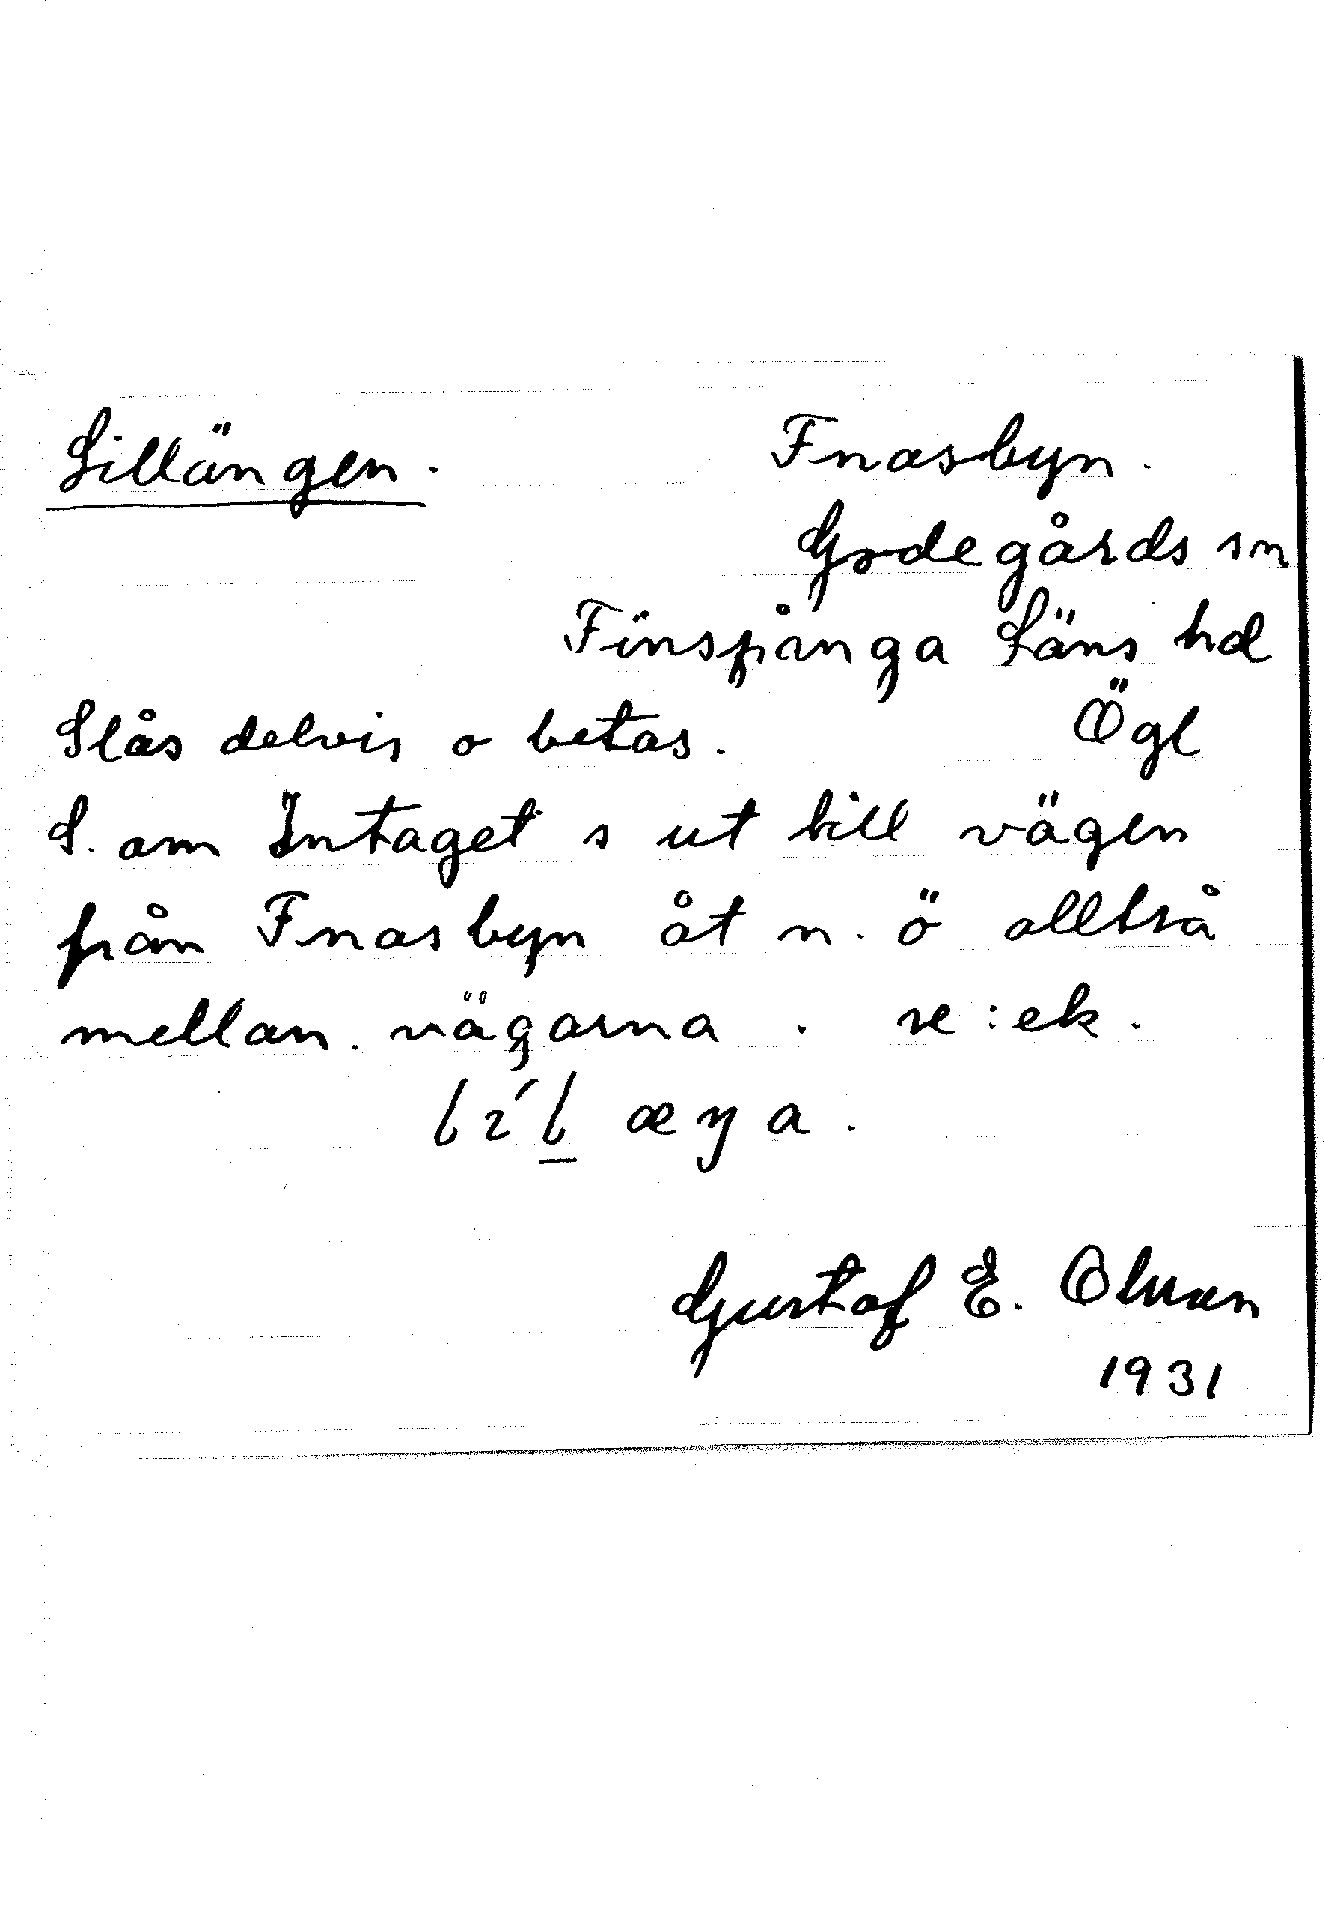 Lillängen.
Fnasbyn.
Godegårds sn
Finspånga Läns hd
Slås delvis o betas. Ögl
S. om Intaget s ut till vägen
från Fnasbyn åt n. ö alltså
mellan. vägarna. se: ek.
Gustaf E. Olsson
1931